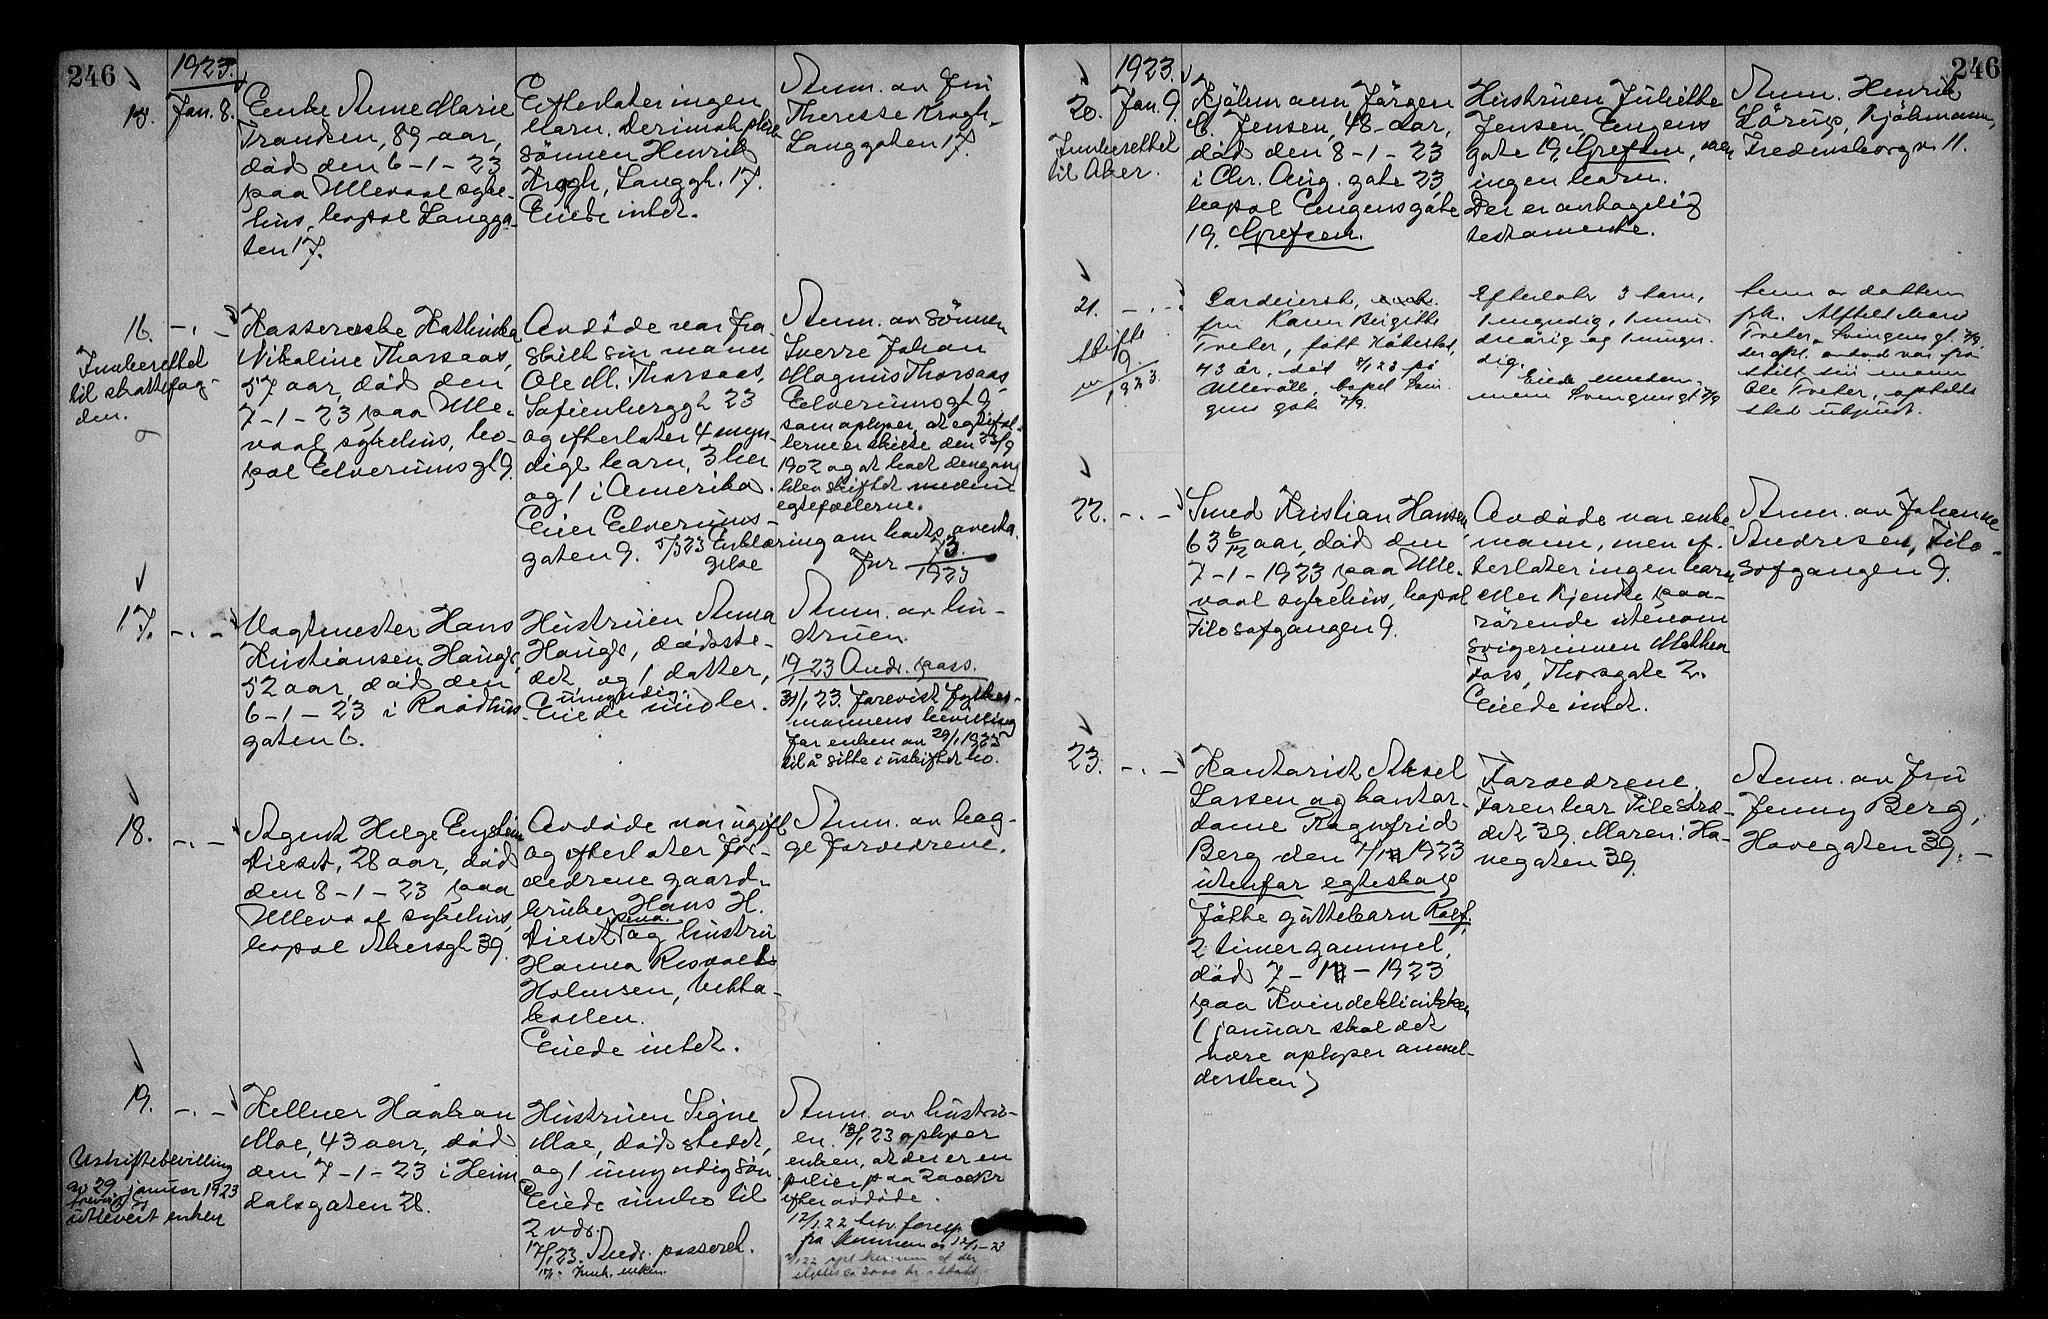 246
1923.
15. Jan. 8.
Enke Anne Marie
Trandsen, 89 aar,
död den 6-1-23
paa Ullevaal syke-
hus, bopæl Langga-
ten 17.
Efterlater ingen
barn. Derimot pleie-
sönnen Henrik
Krogh, Langgt. 17.
Eiede intet.
Anm. av Fru
Therese Krogh,
Langgaten 17.
16. -"-
Innberettet
til skattefog-
den.
Kassererske Kathinka
Nikoline Thorsaas,
57 aar, död den
7-1-23 paa Ulle-
vaal sykehus, bo-
pæl Elverumsgt 9.
Avdöde var fra-
skilt sin mann
Ole M. Thorsaas,
Sofienberggt. 23
og efterlater 4 myn-
dige barn, 3 her
og 1 i Amerika.
Eier Elverums-
gaten 9.
5/3 23 Erklæring om boets overta-
gelse
Anm. av sönnen
Sverre Johan
Magnus Thorsaas
Elverumsgt 9
som oplyser, at egtefol-
kene er skilte den 23/9
1902 og at boet dengang
blev skiftet mellem
egtefællerne.
Jnr 73/1923
17. -"-
Vagtmester Hans
Kristiansen Haugli,
52 aar, död den
6-1-23 i Raadhus-
gaten 6.
Hustruen Anna
Haugli, dödsste-
det og 1 datter,
umyndig.
Eiede midler.
Anm. av hu-
struen.
19/1 23 Andr. pass.
31/1 23. Forevist fylkes-
mannens bevilling
for enken av 29/1 1923
til å sitte i uskiftet bo.
18. -"-
Agent Helge Eystein
Dieset, 28 aar, död
den 8-1-23 paa
Ullevaal sykehus,
bopæl Akersgt 39.
Avdöde var ugift
og efterlater for-
ældrene gaard-
bruker Hans H.
Dieset og hustru
Hanna
Holmsen, Vekka-
bakken.
Eiede intet.
Anm. av beg-
ge forældrene.
19. -"-
Uskiftebevilling
av 29 januar 1923
forevist og
utlevert enken
Kellner Haakon
Moe, 43 aar, död
den 7-1-23 i Heim-
dalsgaten 28.
Hustruen Signe
Moe, dödsstedet,
og 1 umyndig sön.
Eiede innbo til
2 vær.
17/1 23. Andr. passeret.
Anm. av hustru-
en. 13/1 23 oplyser
enken, at der er en
police paa 2000 kr
efter avdöde.
12/1 22 besv. foresp.
fra
246
1923.
20. Jan. 9.
Innberettet
til Aker.
Kjöbmann Jörgen
C. Jensen, 48 aar,
död den 8-1-23
i Chr. Aug. gate 23,
bopæl Engensgate
19. Grefsen.
Hustruen Juliette
Jensen, Engens
gate 19, Grefsen, men
ingen barn.
Der er antagelig
testamente.
Anm. Henrik
Lörup, Kjöbmann,
Fredensborgv. 11.
21. -"-
Skifte
9.
1923.
Gardeiersk,
fru Karen Birgitte
Treter, fött
43 år, död 7/1 23 på
Ullevåll, bopel Svin-
gens gate 7/9.
Efterlater 3 barn,
1 myndig, 1 min-
dreårig og 1 umyn-
dig.
Eiede
Svingens gt 7/9
Anm av datteren
Treter, Svingens gt. 7/9.
der opl. avdöde var fra
skilt sin mann
Ole Treter, opholds
sted ukjent.
22. -"-
Smed Kristian Hansen,
63 6/12 aar, död den
7-1-1923 paa Ulle-
vaal sykehus, bopæl
Filosofgangen 9.
Avdöde var enke-
mann, men ef-
terlater ingen barn
eller kjendte paa-
rörende utenom
svigerinnen Mathea
Foss, Thorsgate 2.
Eiede intet.
Anm. av Johanne
Andresen, Filo-
sofgangen 9.
23. -"-
Kontorist Aksel
Larsen og kontor-
dame Ragnfrid
Berg den 7/1 1923
utenfor egteskap
födte guttebarn Rolf,
2 timer gammel,
död 7-1-1923
paa Kvindeklinikken
(januar skal det
være oplyser anmel-
dersken)
Forældrene.
Faren bor Pilestræ-
det 39. Moren: Ha-
vegaten 39.
Anm. av Fru
Jenny Berg,
Havegaten 39.-